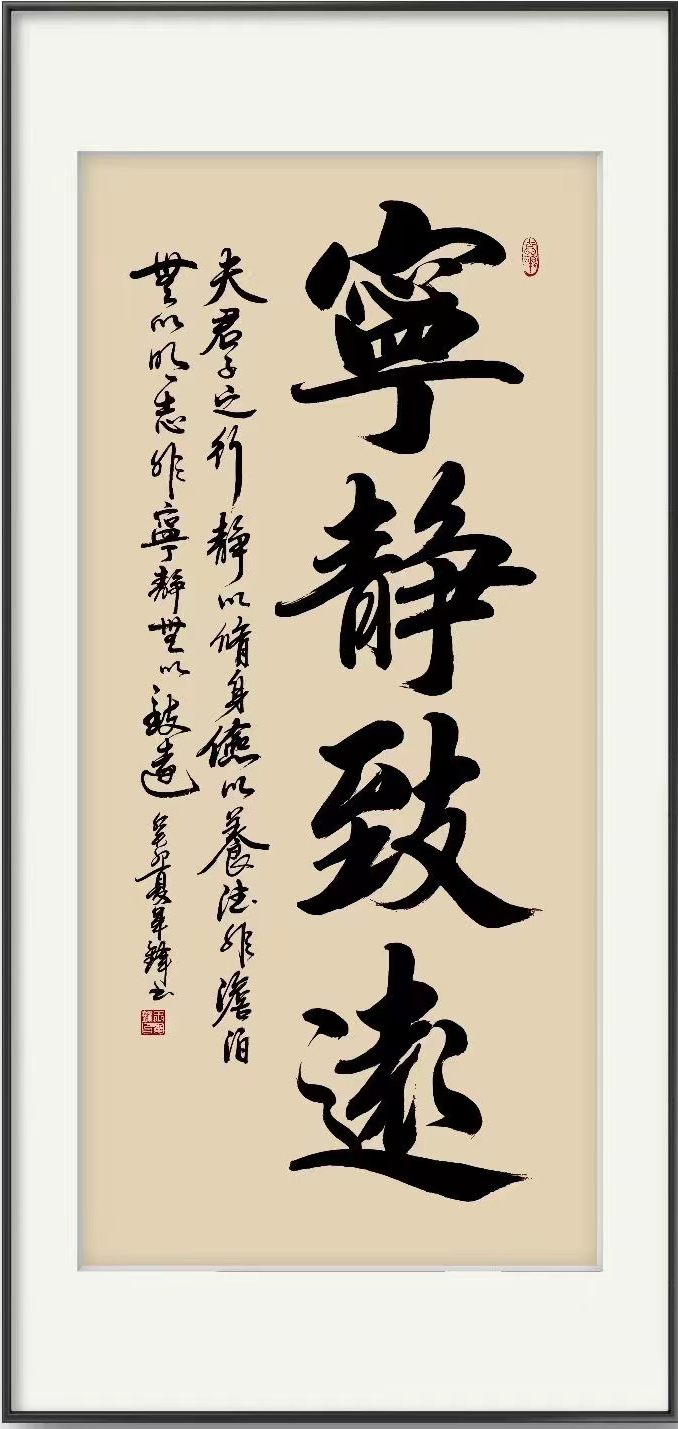 寧静致遠
夫君子之行静以脩身儉以養德非澹泊
無以明志非寧静無以致遠
癸卯夏 鋒书